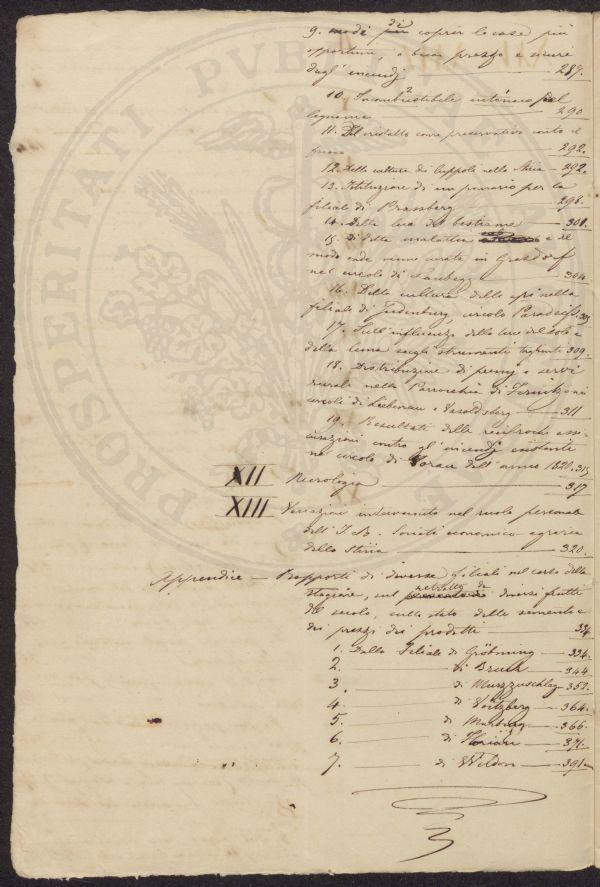 9. modi di coprir le case più
opportuni, a buon prezzo e sicuri
dagl' incendj — 287.
10. Incombustibile intonaco pel
legname — 290
11. Del contro il
— 292.
12. Della coltura di luppoli nella Stiria — 292.
13. Istituzione di un per la
filiale di — 296.
14. Della del bestiame — 301.
15. Di detta malattia e il
modo onde venne curata in
nel circolo di — 304.
16. Della coltura delle api nella
filiale di Judenburg, circolo 305
17. Sull' influenza della luce del sole e
della luna sugli strumenti taglienti 309.
18. Distribuzione di premj a servi
rurali nella Parrocchia di
circoli di Liebenau e Vasoldsberg — 311
19. Resultati delle reciproche assi-
curazioni contro gl' incendj esistente
nel circolo di dell' anno 1820. 315
XII Necrologia — 317
XIII Variazioni intervenute nel ruolo personale
dell' I. R. Società economico-agraria
della Stiria — 320.
Appendice — Rapporti di diverse filiali nel corso della
stagione, sul ritratto de diversi frutti
del suolo, sullo stato delle semente e
dei prezzi dei prodotti — 334
1. Dalla Filiale di Gröbming — 334.
2. — di Bruck — 344
3. — di Murzzuschlag — 352.
4. — di Voitzberg — 364.
5. — di Marburg — 366.
6. — di — 371.
7. — di Wildon — 391.
PROSPERITATI PUBLICAE